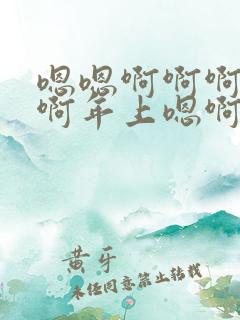 嗯嗯啊啊啊
啊年上嗯啊
黄牙
未经同意禁止转载